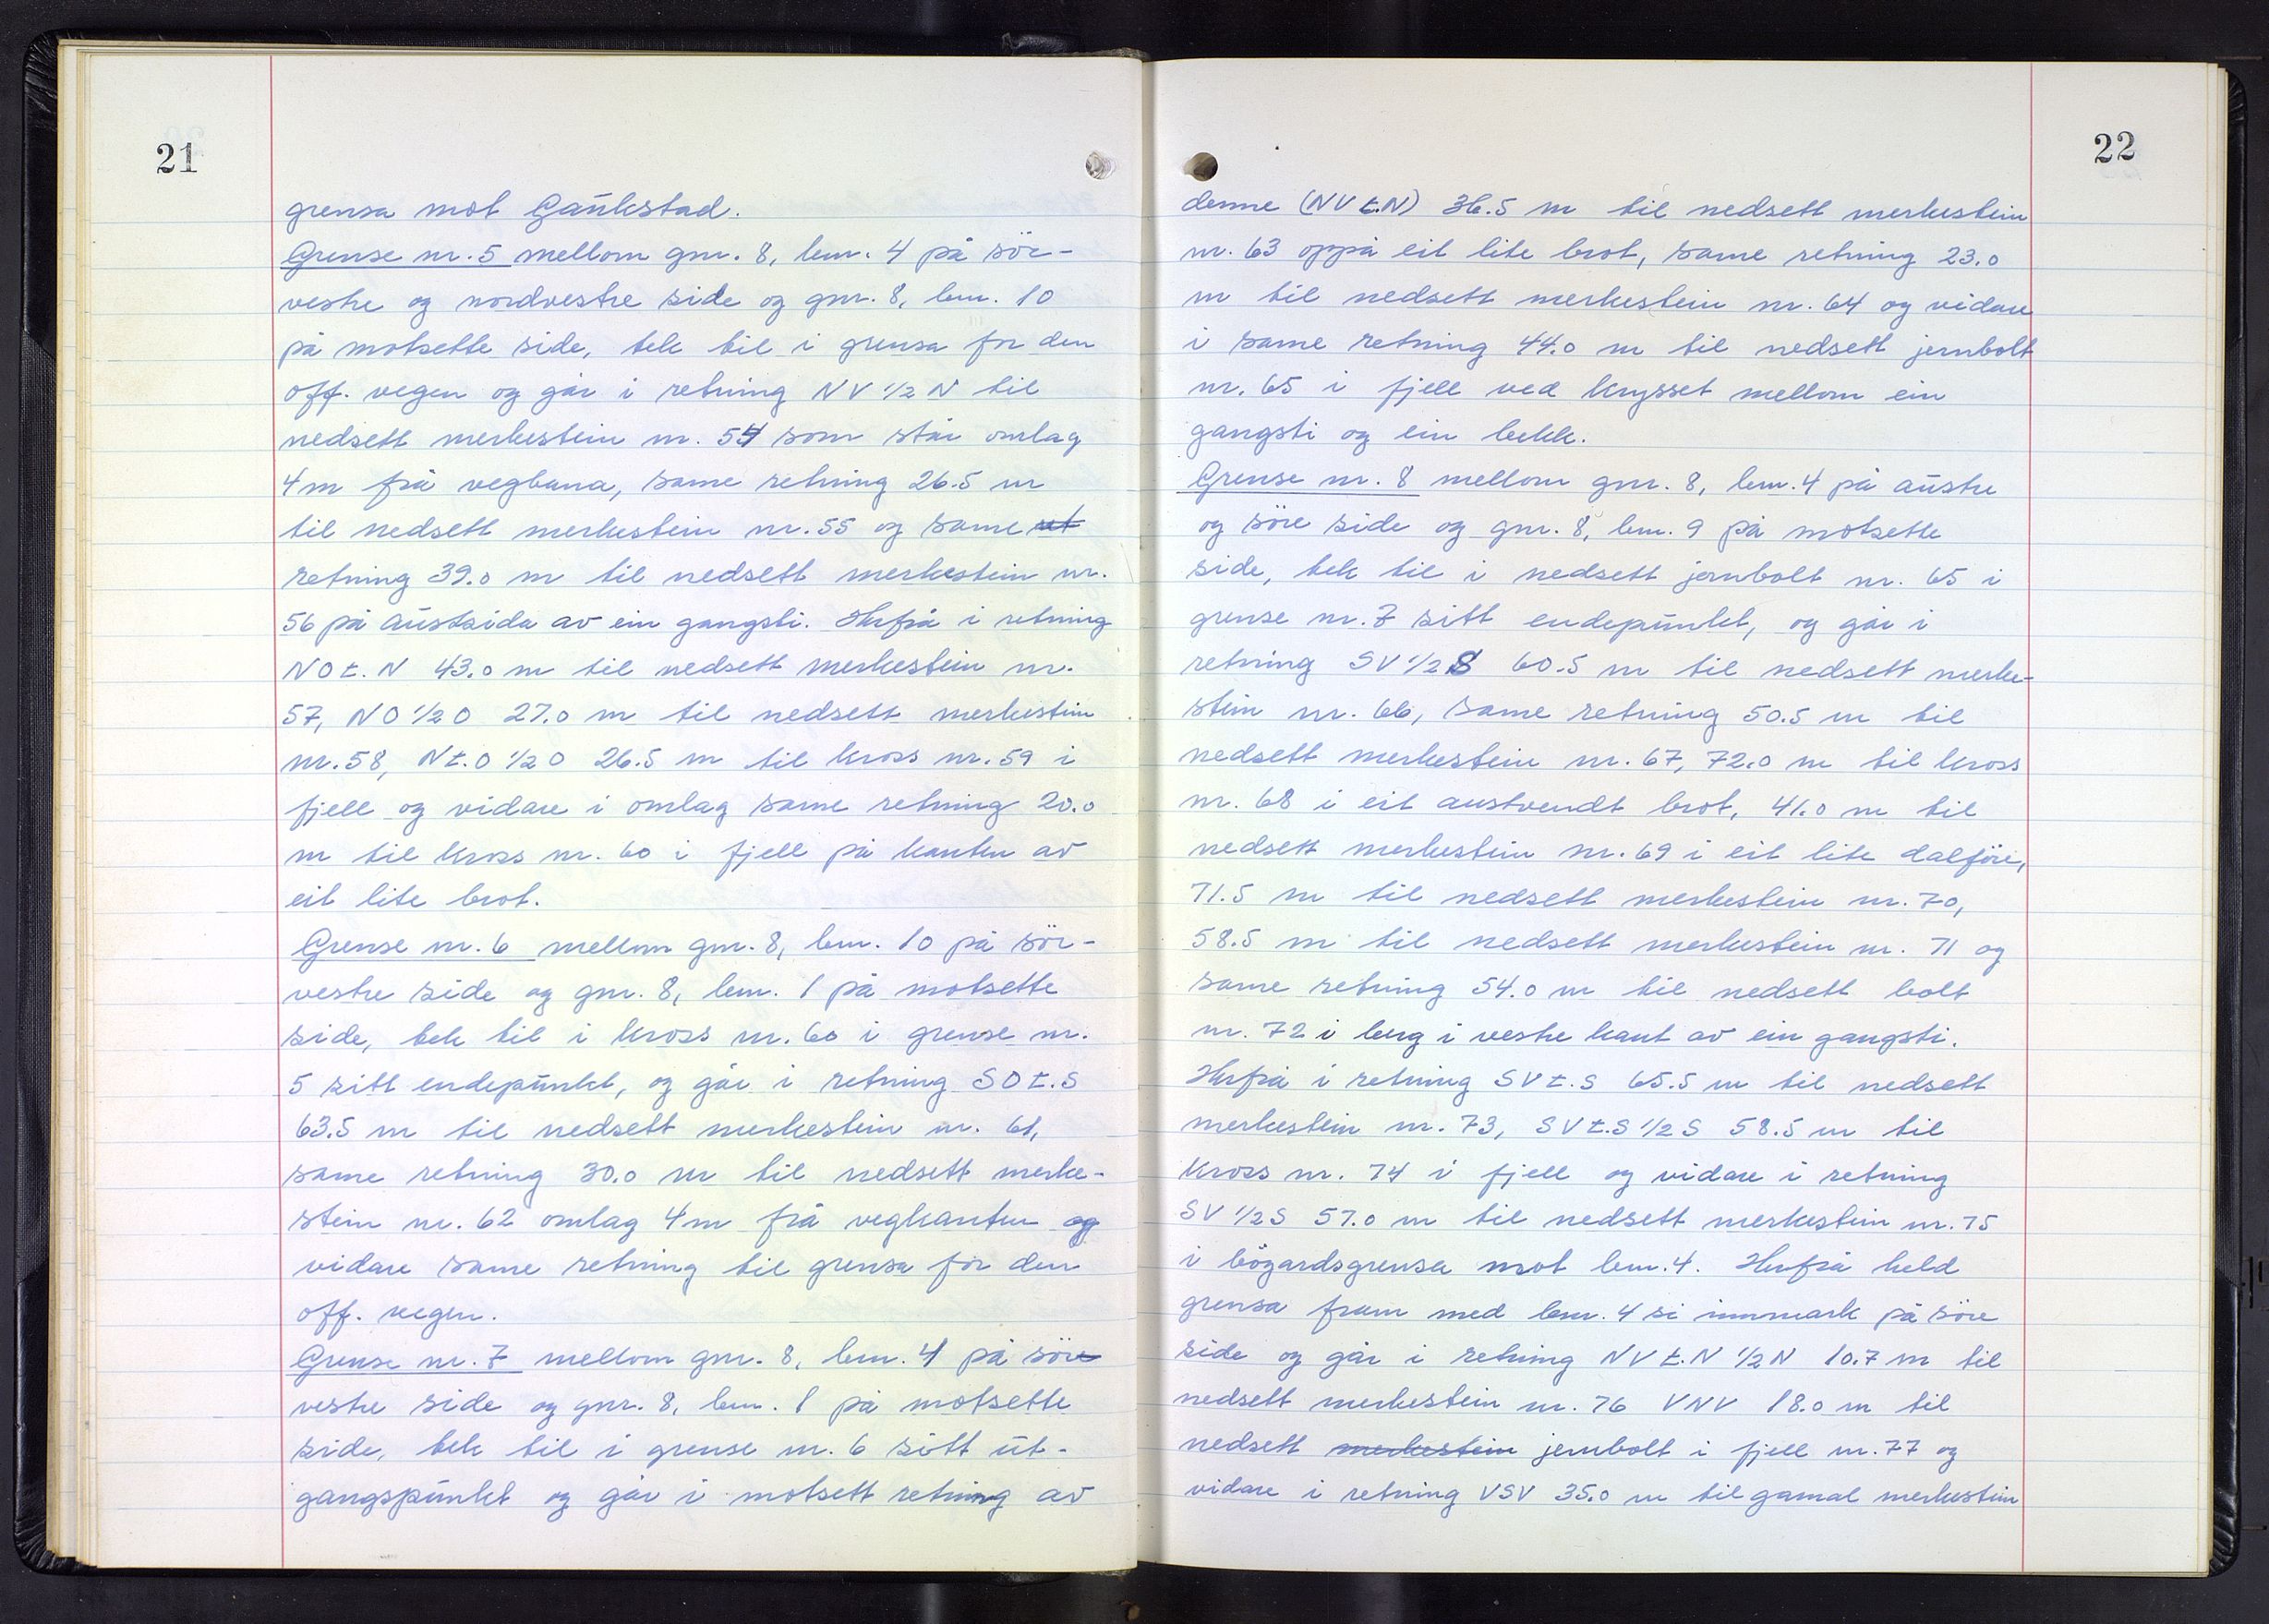 21
grensa mot Gaukstad.
Grense nr. 5 mellom gnr. 8, bnr. 4 på sör-
vestre og nordvestre side og gnr. 8, bnr. 10
på motsette side, tek til i grensa for den
off. vegen og går i retning NV 1/2 N til
nedsett merkestein nr. 54 som står omlag
4 m frå vegbana, same retning 26.5 m
til nedsett merkestein nr. 55 og same ut
retning 39.0 m til nedsett merkestein nr.
56 på austsida av ein gangsti. Herfrå i retning
NO t. N 43.0 m til nedsett merkestein nr.
57, NO 1/2 O 27.0 m til nedsett merkestein
nr. 58, N t. O 1/2 O 26.5 m til kross nr. 59 i
fjell og vidare i omlag same retning 20.0
m til kross nr. 60 i fjell på kanten av
eit lite brot.
Grense nr. 6 mellom gnr. 8, bnr. 10 på sör-
vestre side og gnr. 8, bnr. 1 på motsette
side, tek til i kross nr. 60 i grense nr.
5 sitt endepunkt, og går i retning SO t. S
63.5 m til nedsett merkestein nr. 61,
same retning 30.0 m til nedsett merke-
stein nr. 62 omlag 4 m frå vegkanten og
vidare same retning til grensa for den
off. vegen.
Grense nr. 7 mellom gnr. 8, bnr. 4 på söre
vestre side og gnr. 8, bnr. 1 på motsette
side, tek til i grense nr. 6 sitt ut-
gangspunkt og går i motsett retning av
22
denne (NV t. N) 36.5 m til nedsett merkestein
nr. 63 oppå eit lite brot, same retning 23.0
m til nedsett merkestein nr. 64 og vidare
i same retning 44.0 m til nedsett jernbolt
nr. 65 i fjell ved krysset mellom ein
gangsti og ein bekk.
Grense nr. 8 mellom gnr. 8, bnr. 4 på austre
og söre side og gnr. 8, bnr. 9 på motsette
side, tek til i nedsett jernbolt nr. 65 i
grense nr. 7 sitt endepunkt, og går i
retning SV 1/2 S 60.5 m til nedsett merke-
stein nr. 66, same retning 50.5 m til
nedsett merkestein nr. 67, 72.0 m til kross
nr. 68 i eit austvendt brot, 41.0 m til
nedsett merkestein nr. 69 i eit lite dalföre,
71.5 m til nedsett merkestein nr. 70,
58.5 m til nedsett merkestein nr. 71 og
same retning 54.0 m til nedsett bolt
nr. 72 i berg i vestre kant av ein gangsti.
Herfrå i retning SV t. S 65.5 m til nedsett
merkestein nr. 73, SV t. S 1/2 S 58.5 m til
kross nr. 74 i fjell og vidare i retning
SV 1/2 S 57.0 m til nedsett merkestein nr. 75
i bögardsgrensa mot bnr. 4. Herfrå held
grensa fram med bnr. 4 si innmark på söre
side og går i retning NV t. N 1/2 N 10.7 m til
nedsett merkestein nr. 76 VNV 18.0 m til
nedsett merkestein jernbolt i fjell nr. 77 og
vidare i retning VSV 35.0 m til gamal merkestein